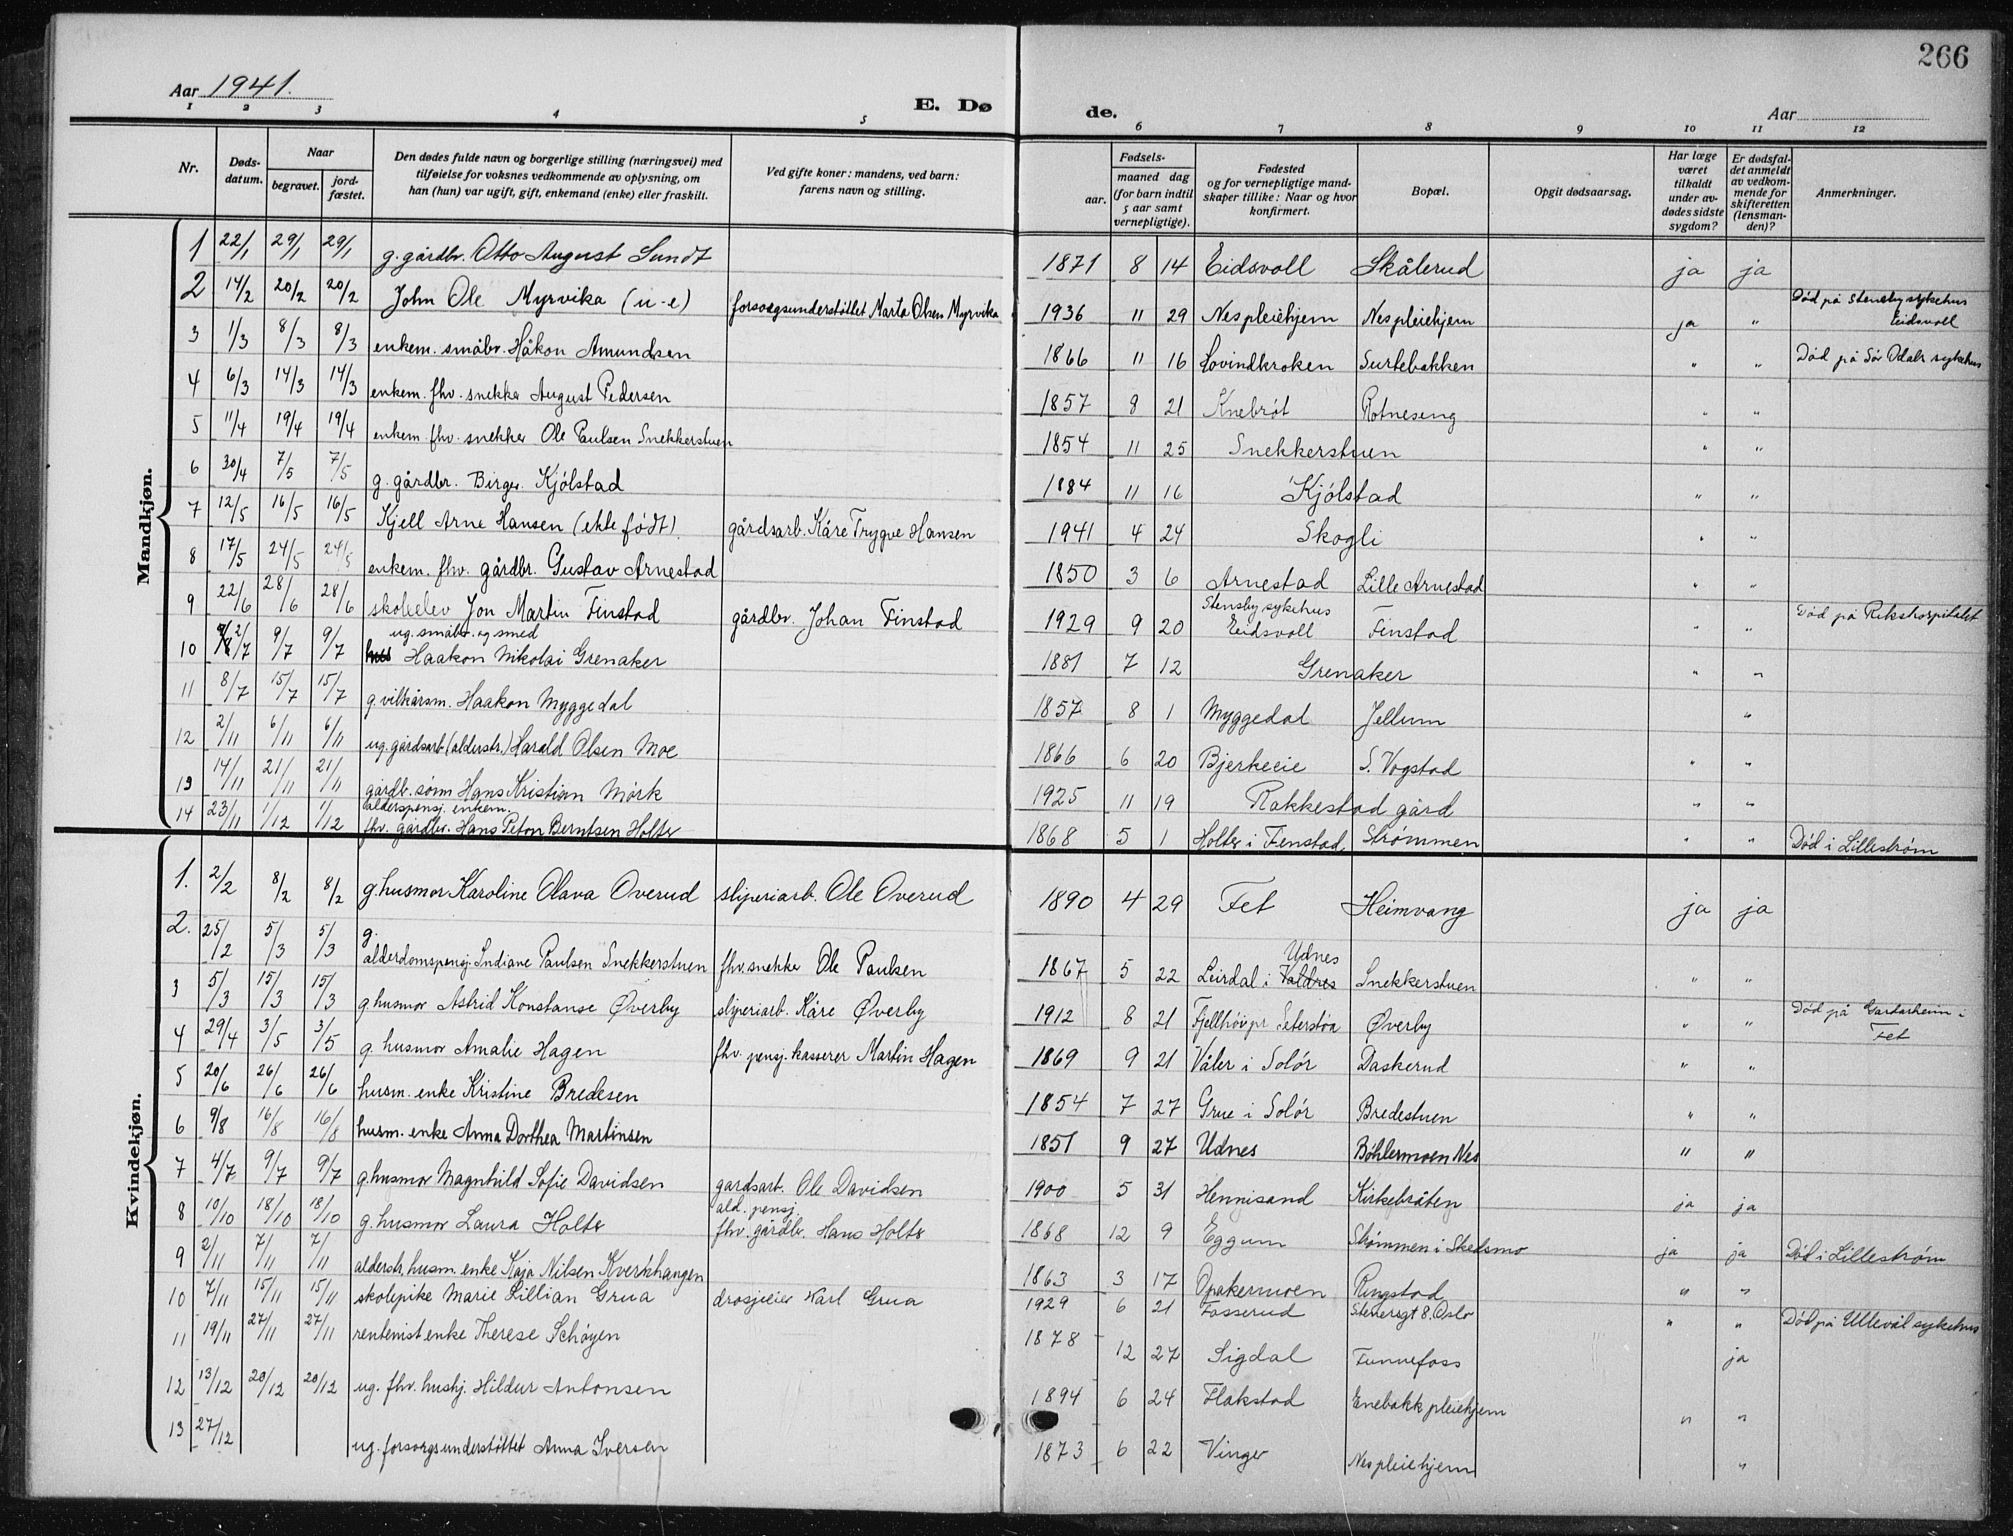 266
Aar 1941.
E. Dø de.
Aar
1 2 3 4 5 6 7 8 9 10 11 12
Nr.
Døds-datum.
Naar
begravet.
jord-fæstet.
Den dødes fulde navn og borgerlige stilling (næringsvei) med
tilføielse for voksnes vedkommende av oplysning, om
han (hun) var ugift, gift, enkemand (enke) eller fraskilt.
Ved gifte koner: mandens, ved barn:
farens navn og stilling.
Fødsels-
aar.
maaned dag
(for barn indtil
5 aar samt
vernepligtige).
Fødested
og for vernepligtige mand-
skaper tillike: Naar og hvor
konfirmert.
Bopæl.
Opgit dødsaarsag.
Har læge
været
tilkaldt
under av-
dødes sidste
sygdom?
Er dødsfal-
det anmeldt
av vedkom-
mende for
skifteretten
(lensman-
den)?
Anmerkninger.
Mandkjøn.
1 22/1 29/1 29/1 g. gårdbr. Otto August Sundt 1871 8 14 Eidsvoll Skålerud ja ja
2 14/2 20/2 20/2 John Ole Myrvika (u-e) forsorgsunderstøttet Marta Olsen Myrvika 1936 11 29 Nes pleiehjem Nes pleiehjem ja " Død på Stensby sykehus
Eidsvoll
3 1/3 8/3 8/3 enkem. småbr. Håkon Amundsen 1866 11 16 Hovindkroken Surtebakken " " Død på Sør Odals sykehus
4 6/3 14/3 14/3 enkem. fhv. snekker August Pedersen 1857 8 21 Knebröt Rotneseng " "
5 11/4 19/4 19/4 enkem. fhv. snekker Ole Paulsen Snekkerstuen 1854 11 25 Snekkerstuen " "
6 30/4 7/5 7/5 g. gårdbr. Birger Kjölstad 1884 11 16 Kjölstad " "
7 12/5 16/5 16/5 Kjell Arne Hansen (ekte födt). gårdsarb. Kåre Trygve Hansen 1941 4 24 Skogli " "
8 17/5 24/5 24/5 enkem. fhv. gårdbr. Gustav Arnestad 1850 3 6 Arnestad Lille Arnestad " "
9 22/6 28/6 28/6 skoleelev Jon Martin Finstad gårdbr. Johan Finstad 1929 9 20 Stensby sykehus
Eidsvoll Finstad " " Død på Rikshospitalet
ug. småbr. og smed
10 2/7 9/7 9/7 Haakon Nikolai Grenaker 1881 7 12 Grenaker " "
11 8/7 15/7 15/7 g. vilkårsm. Haakon Myggedal 1857 8 1 Myggedal Jellum "
12 2/11 6/11 6/11 ug. gårdsarb. (alderstr.) Harald Olsen Moe 1866 6 20 Bjerkeeie S. Vogstad " "
13 14/11 21/11 21/11 gårdb. sønn Hans Kristian Mörk 1925 11 19 Rakkestad gård " "
alderspensj. enkem.
14 23/11 1/12 1/12 fhv. gårdbr. Hans Peton Berntsen Holter 1868 5 1 Holter i Fenstad Strømmen " " Död i Lillestrøm
Kvindekjøn.
1. 2/2 8/2 8/2 g. husmor Karoline Olava Overud sliperiarb. Ole Overud 1890 4 29 Fet Heimvang ja ja
2. 25/2 5/3 5/3 g.
alderdomspensj. Indiane Paulsen Snekkerstuen fhv. snekker Ole Paulsen 1867 5 22 Leirdal i Valdres Udnes Snekkerstuen " "
3 5/3 15/3 15/3 g. husmor Astrid Konstanse Øverby sliperiarb. Kåre Øverby 1912 8 21 Fjellhöi pr Seterstöa Øverby " " Død på Gardarheim i
Fet
4 29/4 3/5 3/5 g. husmor Amalie Hagen fhv. pensj. kasserer Martin Hagen 1869 9 21 Våler i Solör Daskerud " "
5 20/6 26/6 26/6 husm. enke Kristine Bredesen 1854 7 27 Grue i Solör Bredestuen " "
6 9/8 16/8 16/8 husm. enke Anna Dorthea Martinsen 1851 9 27 Udnes Böhlermoen Nes " "
7 4/7 9/7 9/7 g. husmor Magnhild Sofie Davidsen gardsarb. Ole Davidsen 1900 5 31 Hennisand Kirkebråten ja ja
8 10/10 18/10 18/10 g. husmor Laura Holter ald. pensj.
fhv. gårdbr. Hans Holter 1868 12 9 Eggum Strømmen i Skedsmo ja ja Död i Lillestrøm
9 2/11 7/11 7/11 alderstr. husm. enke Kaja Nilsen Kvernhangen 1863 3 17 Opakermoen Ringstad " "
10 7/11 15/11 15/11 skolepike Marie Lillian Grua drosjeeier Karl Grua 1929 6 21 Fosserud Stenersgt 8. Oslo " " Död på Ullevål sykehus
11 19/11 27/11 27/11 rentenist enke Therese Schöyen 1878 12 27 Sigdal Funnefoss ja
12 13/12 20/12 20/12 ug. fhv. hushj. Hildur Antonsen 1894 6 24 Flakstad Enebakk pleiehjem " "
13 27/12 ug. forsorgsunderstöttet Anna Iversen 1873 6 22 Vinger Nes pleiehjem "